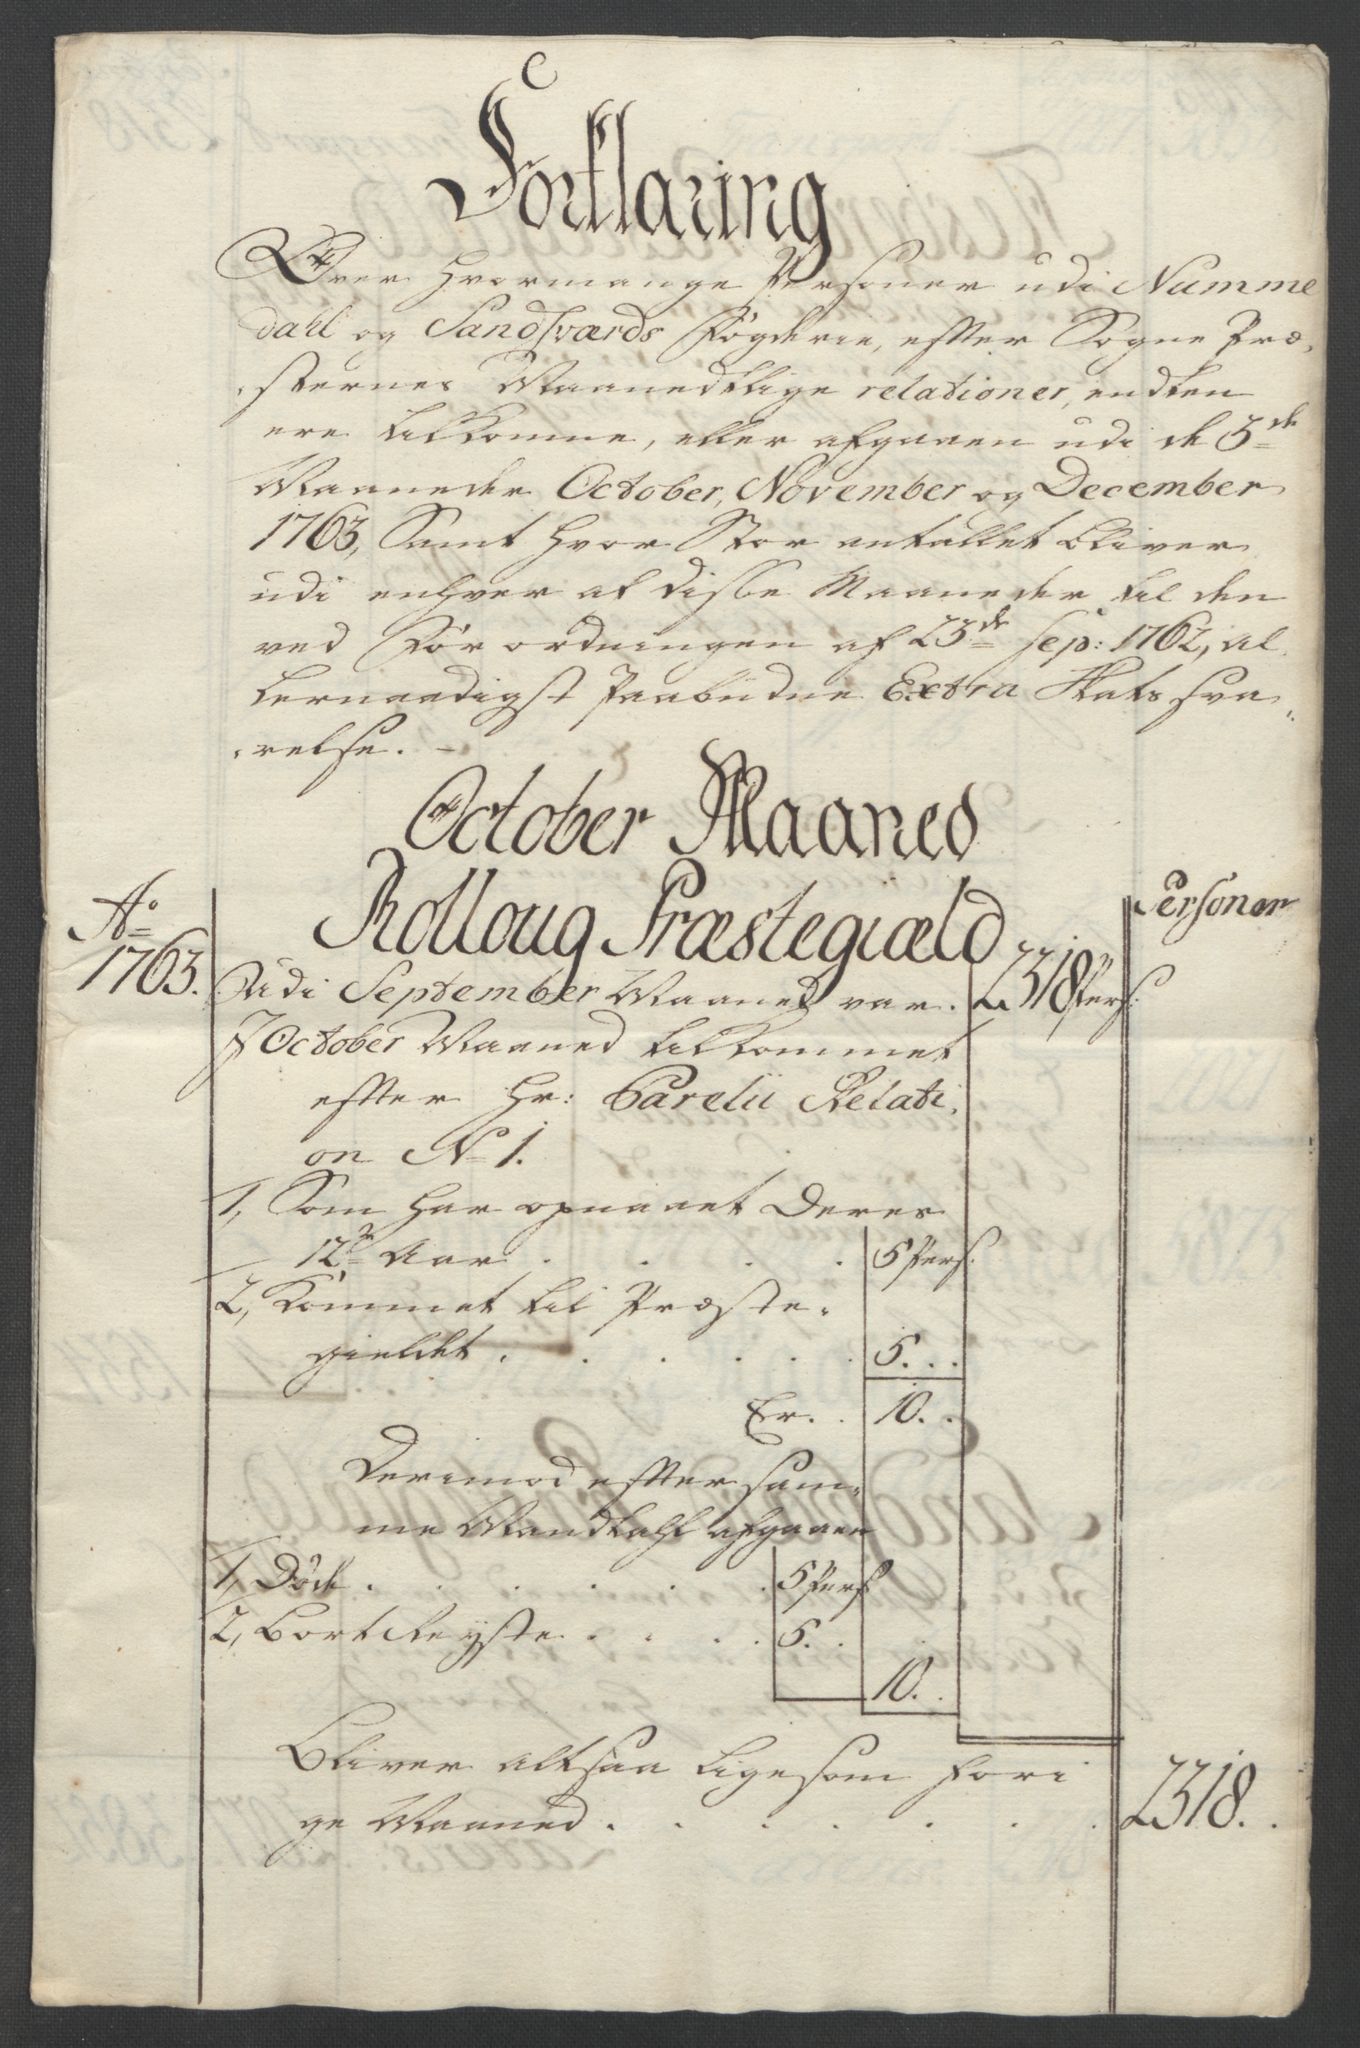 Forklaring
Over hvormange Personer udi Numme
dahl og Sandsværds Fogderie, efter Sogne Præ,
,sternes Maanedtlige relationer, endten
ere tilkomne, eller afgaaen udi de 3de
Maaneder October, November og December
1763, Samt hvor Stor antallet bliver
udi enhver af disse Maaneder til den
ved Forordningen af 23de Sep: 1762, al
lernaadigst Paabudne Extra Skats sva,,
,relse. –
October Maaned
Personer
Ao
1763.
Rolloug Præstegiæld
Udi September Maaned var . 2318 Pers:
J October Maaned tilkommet
efter Hr: Carelii Relati,
on No 1.
1, Som har opnaaet Deres
12te Aar . . . . . 5 Pers.
2, Kommet til Præste,
gieldet . . . . . . 5. . .
Er. . 10. .
Derimod efter sam,
me Mandtahl afgaaen
1, Døde . . . . . . 5 Pers
2, Bort Reyste . . . . 5. . .
10. .
Bliver altsaa ligesom fori
ge Maaned . . . . . . . 2318. .